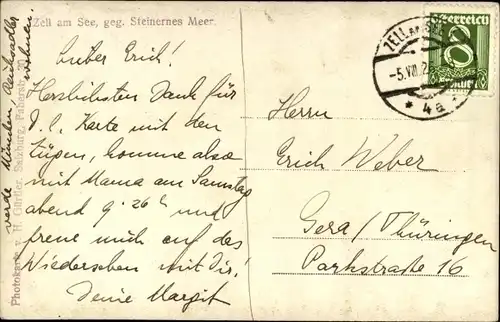 Zell am See, geg. Steinernes Meer.
Lieber Erich!
Herzlichsten Dank für
D. l. Karte mit den
Zügen, komme also
mit Mama am Samstag
abend 9.26h und
freue mich auf das
Wiedersehen mit Dir!
Deine Margit
werde München,
wohnen.
Photokarte v. H. Gürtler, Salzburg,
ZELL AM
-5.VIII.2
* 4a *
Österreich
8
Herrn
Erich Weber
Gera/Thüringen
Parkstraße 16